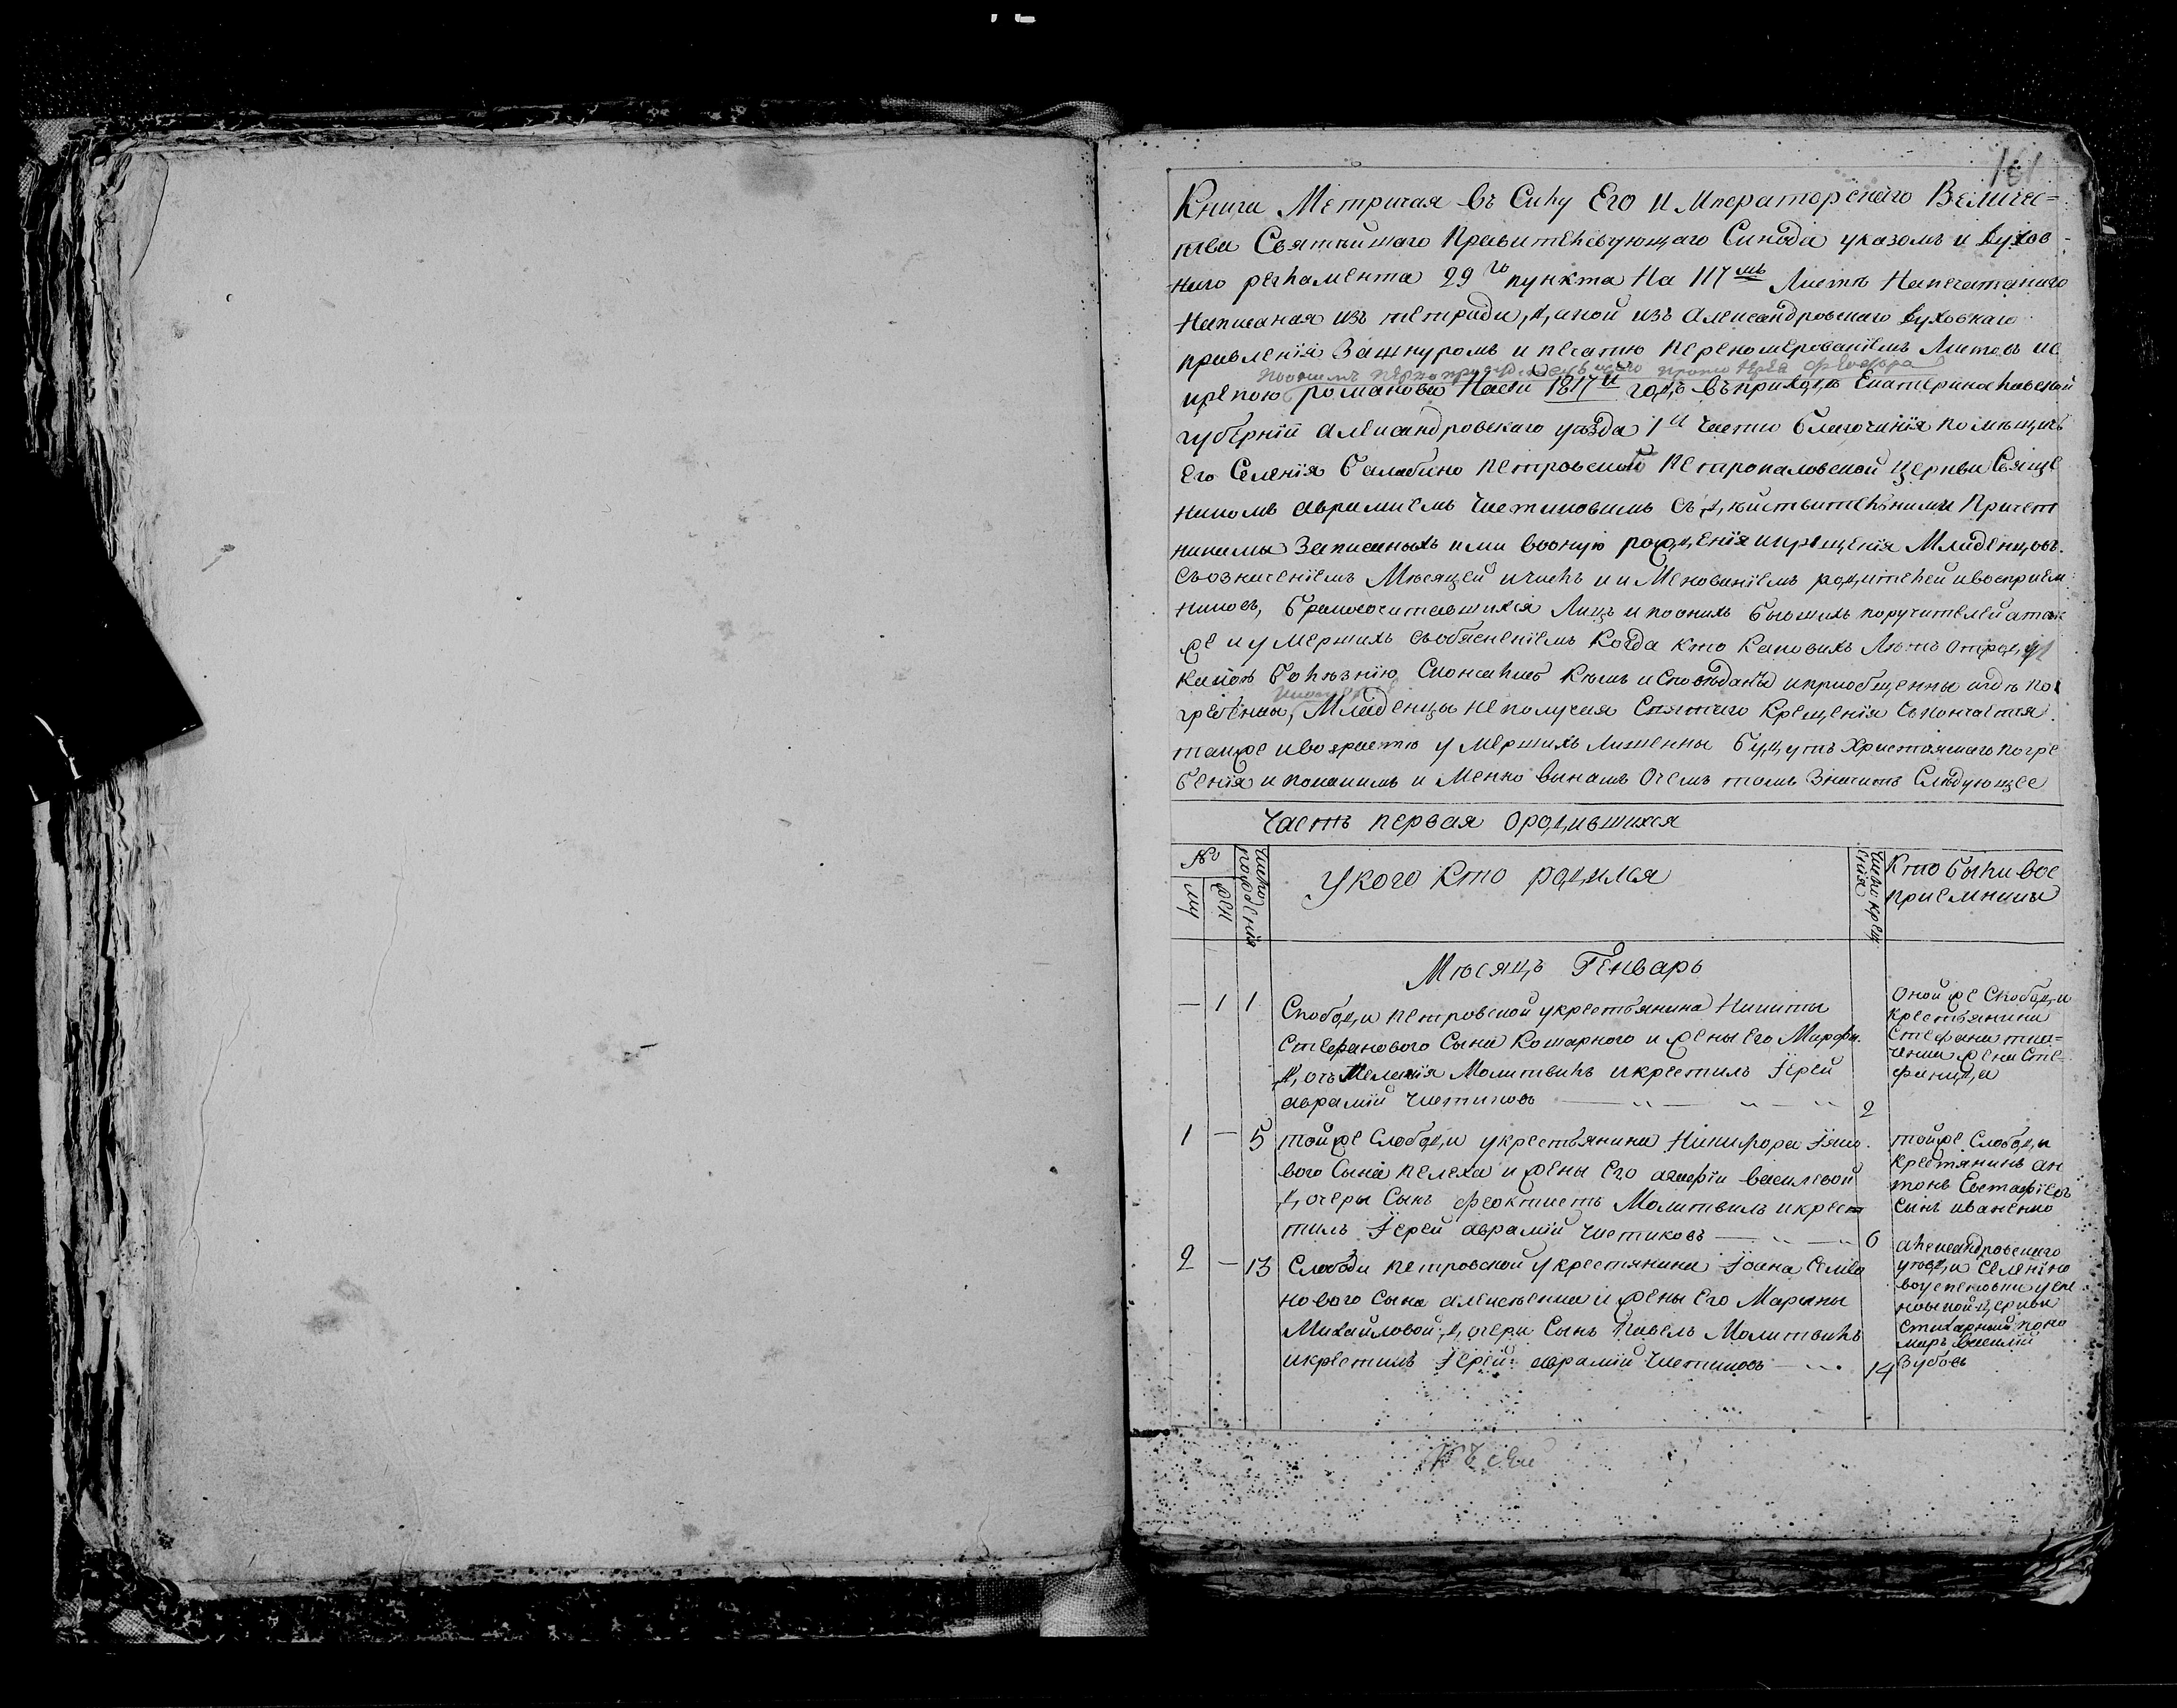 161
Книга Метричая въ Силу Его Императорскаго Величес=
тва Святѣйшаго Правительствующаго Синода указомъ и духов-
наго регламента 29го пункта На 117мъ Листѣ Напечатанаго
Написаная изъ тетради, даной изъ Александровскаго духовнаго
правленія Зашнуромъ и печатю перекомерованіемъ Листовъ ис
протоіерея феодора
крепою романова Насей 1817й годъ въ приходѣ Екатеринославской
губерніи александровскаго уѣзда 1й части благочинія помѣщичь
его Селенія балабино петровской петропаловской церкви Свяще
никомъ авраміемъ Четиковимъ Съ действительними Причет
никами Записаныхъ ими вооную рожденія икрещенія Младенцовъ.
Съозначеніемъ Мѣсяцей ичислъ и иМенованіемъ родителей ивоспріем
никовъ, бракосочитавшихся Лицъ и поонихъ бывшихъ поручителей атак
же и умершихъ Собясненіемъ Когда кто Каковихъ Лѣтъ отрод,у
какою болѣзнію Скончались Кѣмъ иСповѣданы иприобщенны игдѣ по
гребенны, Младенцы неполучая Святаго Крещенія Скончаетая
также ивозрасте умершихъ Лишенны будутъ Христоянскаго погре
бенія и покакимъ иМенно винамъ Очемъ томъ Значитъ Слѣдующее
Часть первая Ородившихся
№
му
жен
Число рожденія
Укого Кто родился
Число крещенія
Кто были вос
приемники
Мѣсяцъ Генварь
— 1 1
Слободи петровской укрестьянина Никиты
Стефанового Сына Комарного и жены Его Марфи.
дочь Меланія Молитвилъ икрестилъ Іерей
аврамій Четиковъ
2
Оной же Слободи
крестьянина
Стефана тка=
ченка жена Сте-
фанида
1 — 5
тойже Слободи укрестьянина Никифора Яко
вого Сына пелеха и жены Его агафіи василевой
дочеры Сынъ феоктистъ Молитвилъ икрест
тилъ Іерей аврамій Четиковъ
6
тойже Слободи
крестянинъ ан
тонъ Евстафіевъ
Синъ иваненко
2 — 13
Слободи петровской укрестянина Іоана Семіо
нового Сына алексеенка и жены Его Марыны
Михайловой дочери Сынъ павелъ Молитвилъ
икрестилъ Іерей аврамій Четиковъ
14
александровскаго
уѣзда Селенія но
воуспеновки успе
новской церкви
Стихарний поно
маръ василій
Зубовъ